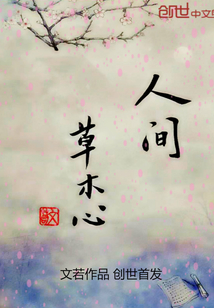 创世中文网
人间
草木心
文若作品 创世首发